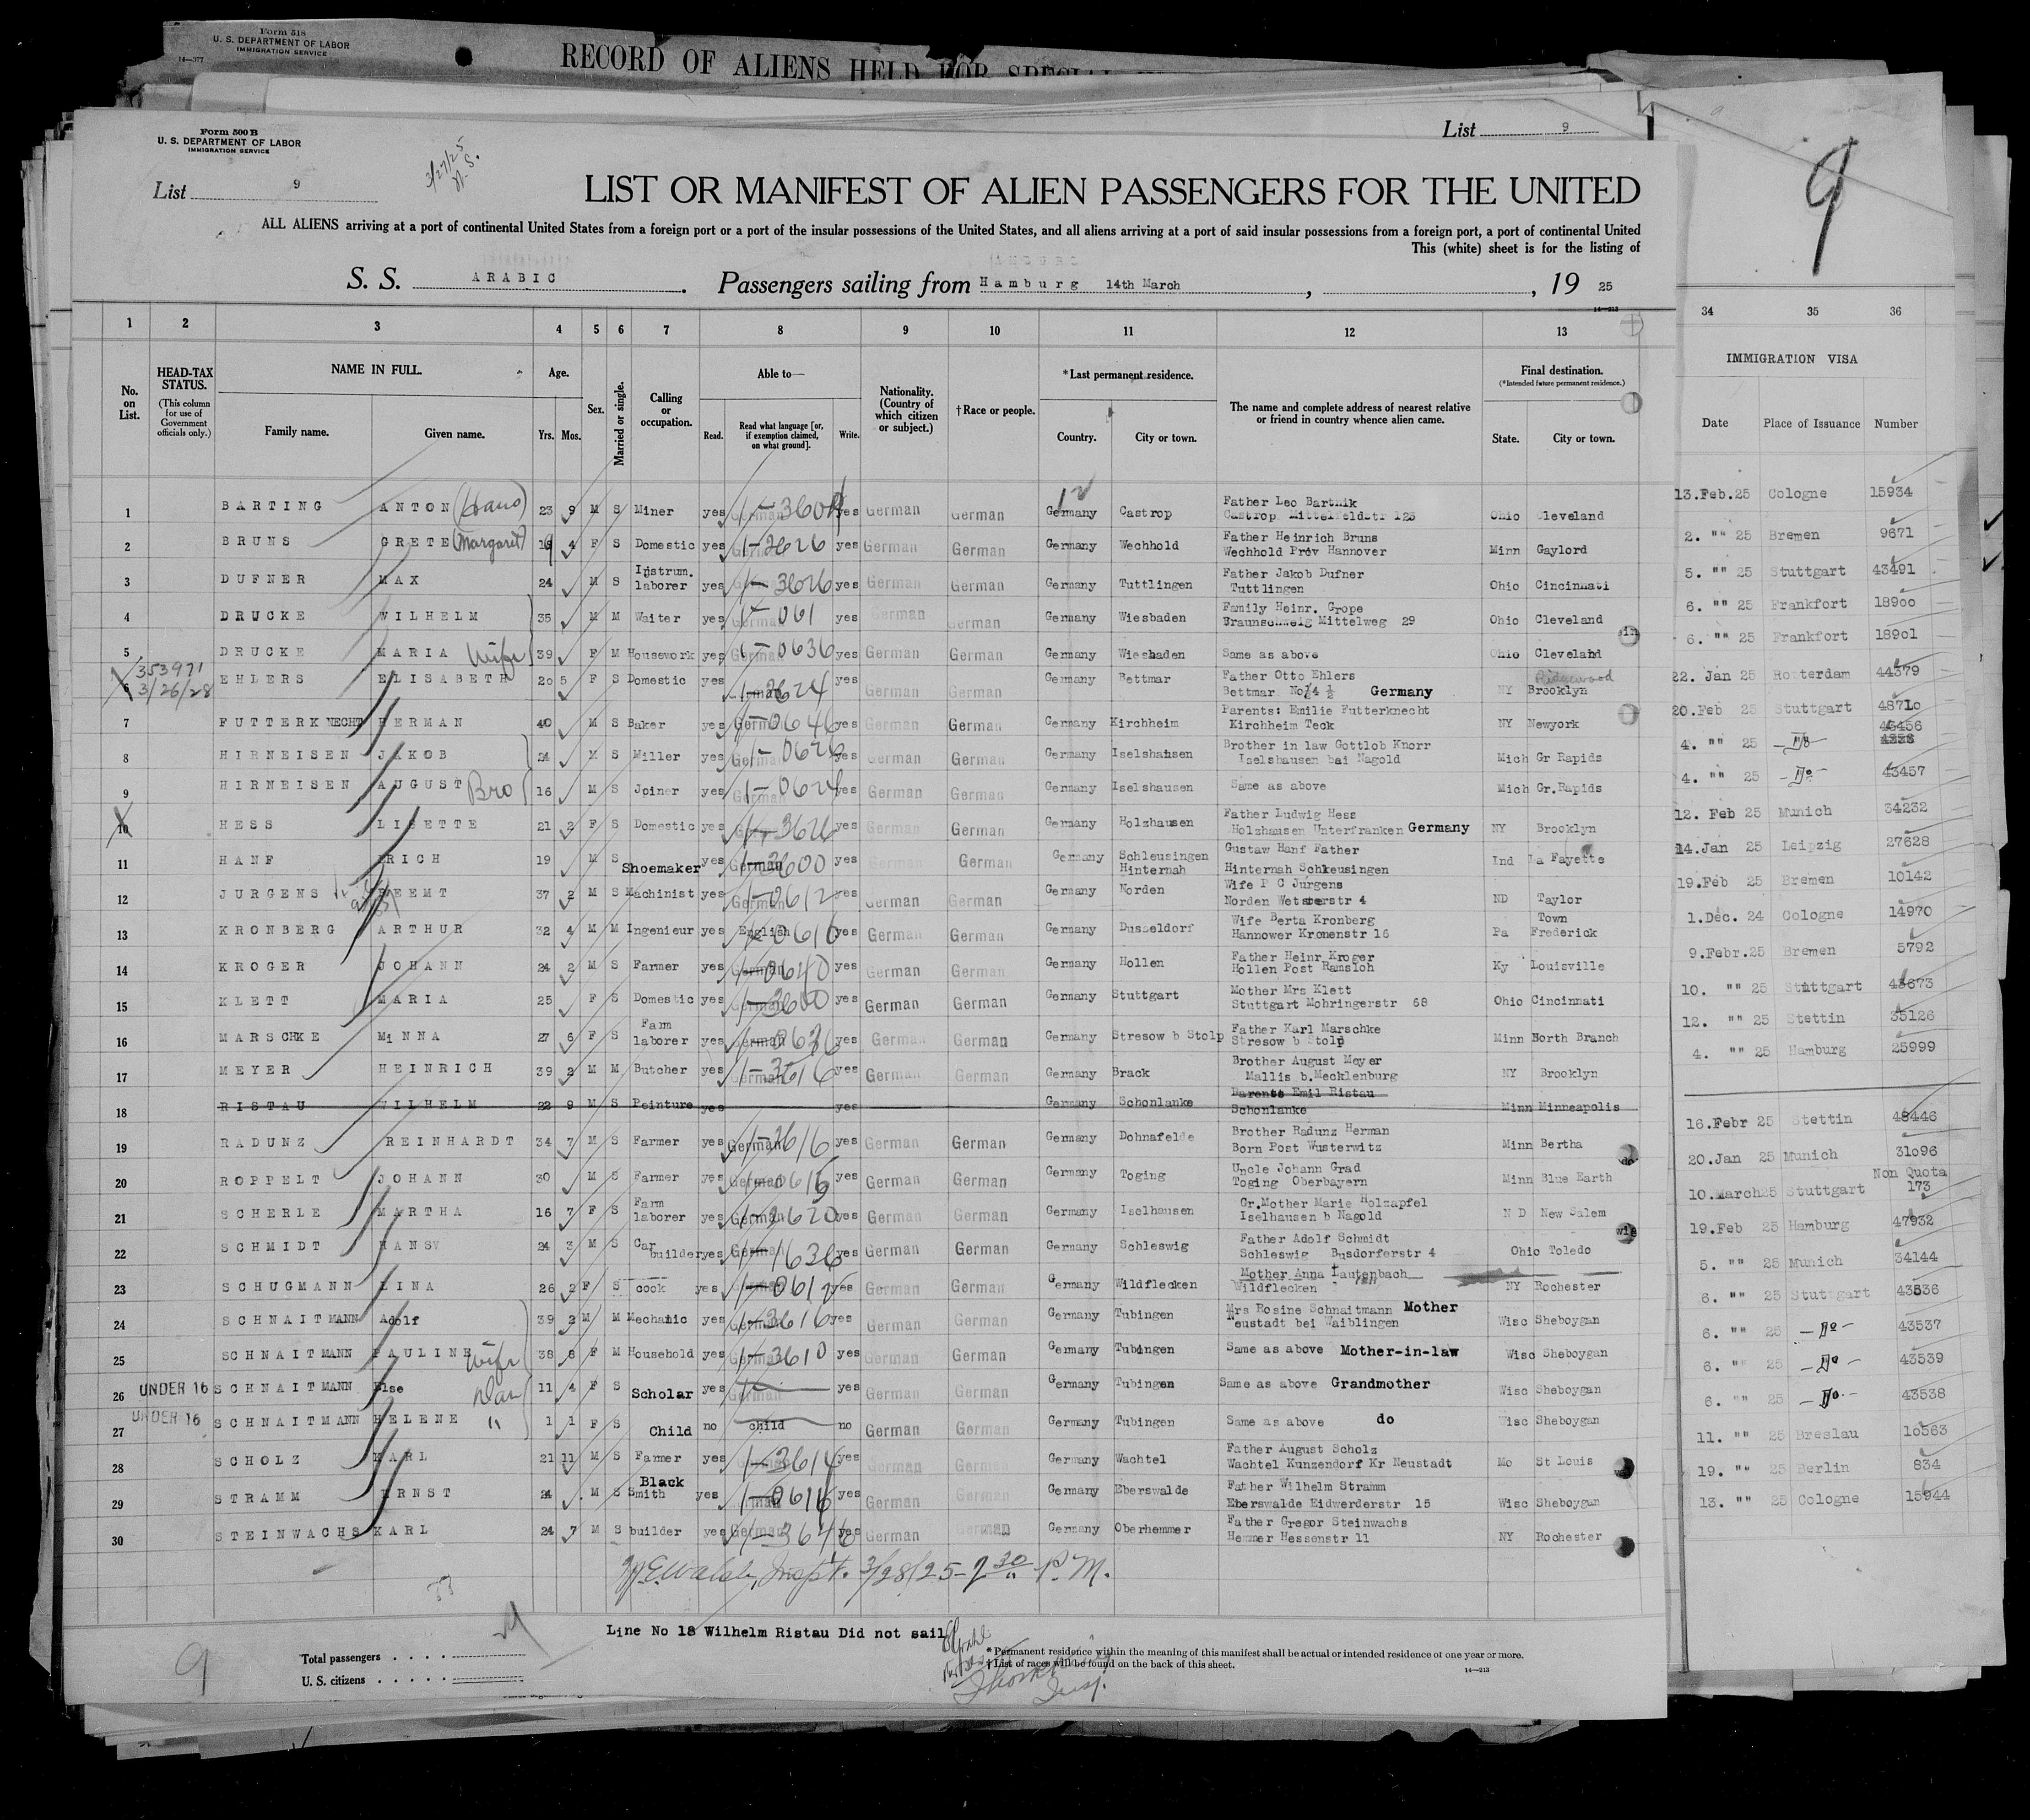 Form 518
U. S. DEPARTMENT OF LABOR
IMMIGRATION SERVICE
14—377
RECORD OF ALIENS HELD FOR SPECIAL
Form 500 B
U. S. DEPARTMENT OF LABOR
IMMIGRATION SERVICE
3/27/25
N. S.
List 9
List 9
9
LIST OR MANIFEST OF ALIEN PASSENGERS FOR THE UNITED
ALL ALIENS arriving at a port of continental United States from a foreign port or a port of the insular possessions of the United States, and all aliens arriving at a port of said insular possessions from a foreign port, a port of continental United
This (white) sheet is for the listing of
S. S. ARABIC. Passengers sailing from Hamburg 14th March, , 19 25
14—213
1 2 3 4 5 6 7 8 9 10 11 12 13 34 35 36
No. on List.
HEAD-TAX STATUS. (This column for use of Government officials only.)
NAME IN FULL.
Family name. Given name.
Age. Yrs. Mos.
Sex.
Married or single.
Calling or occupation.
Able to—
Read. Read what language [or, if exemption claimed, on what ground]. Write.
Nationality. (Country of which citizen or subject.)
†Race or people.
*Last permanent residence.
Country. City or town.
The name and complete address of nearest relative or friend in country whence alien came.
Final destination.
(*Intended future permanent residence.)
State. City or town.
IMMIGRATION VISA
Date Place of Issuance Number
1 BARTING ANTON (Hans) 23 9 M S Miner yes German yes German German Germany Castrop Father Leo Bartnik Castrop Mittelfeldstr 125 Ohio Cleveland 13.Feb.25 Cologne 15934
2 BRUNS GRETE (Margaret) 19 4 F S Domestic yes German 1-2626 yes German German Germany Wechhold Father Heinrich Bruns Wechhold Prov Hannover Minn Gaylord 2. "" 25 Bremen 9671
3 DUFNER MAX 24 M S Instrum. laborer yes 1-3626 yes German German Germany Tuttlingen Father Jakob Dufner Tuttlingen Ohio Cincinnati 5. "" 25 Stuttgart 43491
4 DRUCKE WILHELM 35 M M Waiter yes German 1-061 yes German German Germany Wiesbaden Family Heinr. Grope Braunschweig Mittelweg 29 Ohio Cleveland 6. "" 25 Frankfort 18900
5 DRUCKE MARIA wife 39 F M Housework yes German 1-0636 yes German German Germany Wiesbaden Same as above Ohio Cleveland 6. "" 25 Frankfort 18901
353971
3/26/28
6 EHLERS ELISABETH 20 5 F S Domestic yes 1-2624 yes German German Germany Bettmar Father Otto Ehlers Bettmar No 74 ½ Germany NY Ridgewood Brooklyn 22. Jan 25 Rotterdam 44379
7 FUTTERKNECHT HERMAN 40 M S Baker yes German 0646 yes German German Germany Kirchheim Parents: Emilie Futterknecht Kirchheim Teck NY Newyork 20.Feb 25 Stuttgart 48710
8 HIRNEISEN JAKOB 24 M S Miller yes German 1-0626 yes German German Germany Iselshausen Brother in law Gottlob Knorr Iselshausen bai Nagold Mich Gr Rapids 4. "" 25 -Do- 43456
9 HIRNEISEN AUGUST Bro 16 M S Joiner yes German 1-0624 yes German German Germany Iselshausen Same as above Mich Gr.Rapids 4. "" 25 -Do- 43457
10 HESS LISETTE 21 2 F S Domestic yes 1-3626 yes German German Germany Holzhausen Father Ludwig Hess Holzhausen Unterfranken Germany NY Brooklyn 12. Feb 25 Munich 34232
11 HANF ERICH 19 M S Shoemaker yes German yes German German Germany Schleusingen Hinternah Gustaw Hanf Father Hinternah Schleusingen Ind La Fayette 14.Jan 25 Leipzig 27628
12 JURGENS REEMT 37 2 M S Machinist yes German 1-0612 yes German German Germany Norden Wife P C Jurgens Norden Westerstr 4 ND Taylor 19.Feb 25 Bremen 10142
13 KRONBERG ARTHUR 32 4 M M Ingenieur yes English 0610 yes German German Germany Dusseldorf Wife Berta Kronberg Hannower Kronenstr 16 Pa Town Frederick 1.Dec. 24 Cologne 14970
14 KROGER JOHANN 24 2 M S Farmer yes German 0640 yes German German Germany Hollen Father Heinr Kroger Hollen Post Ramsloh Ky Louisville 9.Febr.25 Bremen 5792
15 KLETT MARIA 25 F S Domestic yes German 1-3600 yes German German Germany Stuttgart Mother Mrs Klett Stuttgart Mohringerstr 68 Ohio Cincinnati 10. "" 25 Stuttgart 43673
16 MARSCHKE MiNNA 27 6 F S Farm laborer yes German yes German German Germany Stresow b Stolp Father Karl Marschke Stresow b Stolp Minn North Branch 12. "" 25 Stettin 35126
17 MEYER HEINRICH 39 2 M M Butcher yes German 1-3616 yes German German Germany Brack Brother August Meyer Mallis b.Mecklenburg NY Brooklyn 4. "" 25 Hamburg 25999
18 RISTAU WILHELM 22 9 M S Peinture yes yes Germany Schonlanke Parents Emil Ristau Schonlanke Minn Minneapolis
19 RADUNZ REINHARDT 34 7 M S Farmer yes German 1-3616 yes German German Germany Dohnafelde Brother Radunz Herman Born Post Wusterwitz Minn Bertha 16.Febr 25 Stettin 48446
20 ROPPELT JOHANN 30 M S Farmer yes German 0615 yes German German Germany Toging Uncle Johann Grad Toging Oberbayern Minn Blue Earth 20.Jan 25 Munich 31096
21 SCHERLE MARTHA 16 7 F S Farm laborer yes German 1-3620 yes German German Germany Iselhausen Gr.Mother Marie Holzapfel Iselhausen b Nagold N D New Salem 10.March25 Stuttgart Non Quota 173
22 SCHMIDT HANS 24 3 M S Car builder yes German 1636 yes German German Germany Schleswig Father Adolf Schmidt Schleswig Busdorferstr 4 Ohio Toledo 19.Feb 25 Hamburg 47932
23 SCHUGMANN LINA 26 2 F S cook yes German yes German German Germany Wildflecken Mother Anna Lautenbach Wildflecken NY Rochester 5. "" 25 Munich 34144
24 SCHNAITMANN Adolf 39 2 M M Mechanic yes German 1-3616 yes German German Germany Tubingen Mrs Rosine Schnaitmann Mother Neustadt bei Waiblingen Wisc Sheboygan 6. "" 25 Stuttgart 43536
25 SCHNAITMANN PAULINE wife 38 8 F M Household yes German 1-3610 yes German German Germany Tubingen Same as above Mother-in-law Wisc Sheboygan 6. "" 25 -Do- 43537
26 UNDER 16 SCHNAITMANN Else Dau 11 4 F S Scholar yes German yes German German Germany Tubingen Same as above Grandmother Wisc Sheboygan 6. "" 25 -Do- 43539
27 UNDER 16 SCHNAITMANN HELENE " 1 1 F S Child no child no German German Germany Tubingen Same as above do Wisc Sheboygan 6. "" 25 -Do- 43538
28 SCHOLZ KARL 21 11 M S Farmer yes 1-3614 yes German German Germany Wachtel Father August Scholz Wachtel Kunzendorf Kr Neustadt Mo St Louis 11. "" 25 Breslau 10563
29 STRAMM ERNST 24 M S Black Smith yes 1-0616 yes German German Germany Eberswalde Father Wilhelm Stramm Eberswalde Eidwerderstr 15 Wisc Sheboygan 19. "" 25 Berlin 834
30 STEINWACHS KARL 24 7 M S builder yes German 1-3646 yes German German Germany Oberhemmer Father Gregor Steinwachs Hemmer Hessenstr 11 NY Rochester 13. "" 25 Cologne 15944
Walsh, Inspt. 3/28/25 - 2 30 P. M.
Line No 18 Wilhelm Ristau Did not sail
9
Total passengers . . . .
U. S. citizens . . . . .
* Permanent residence within the meaning of this manifest shall be actual or intended residence of one year or more.
† List of races will be found on the back of this sheet.
14—213
Insp.